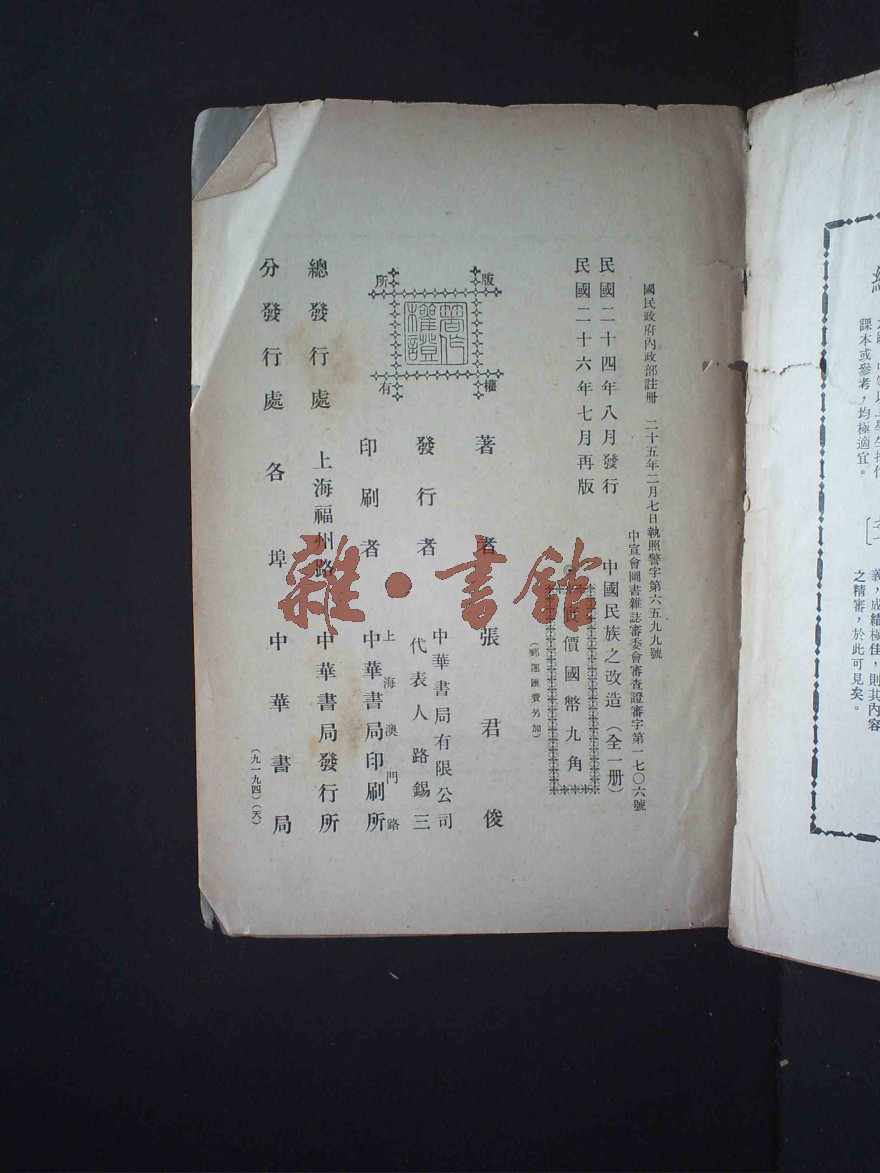 課本或參考，均極適宜。
義，成績極佳，則其內容
之精審，於此可見矣。
國民政府內政部註冊　二十五年二月七日執照警字第六五九九號
中宣會圖書雜誌審委會審查證審字第一七〇六號
民國二十四年八月發行
民國二十六年七月再版
中國民族之改造（全一册）
實價國幣九角
（郵運匯費另加）
版權所有
著作權證
著者　張君俊
發行者　中華書局有限公司
代表人路錫三
印刷者　上海澳門路
中華書局印刷所
總發行處　上海福州路　中華書局發行所
分發行處　各埠　中華書局
（九一九四）（天）
雜·書館